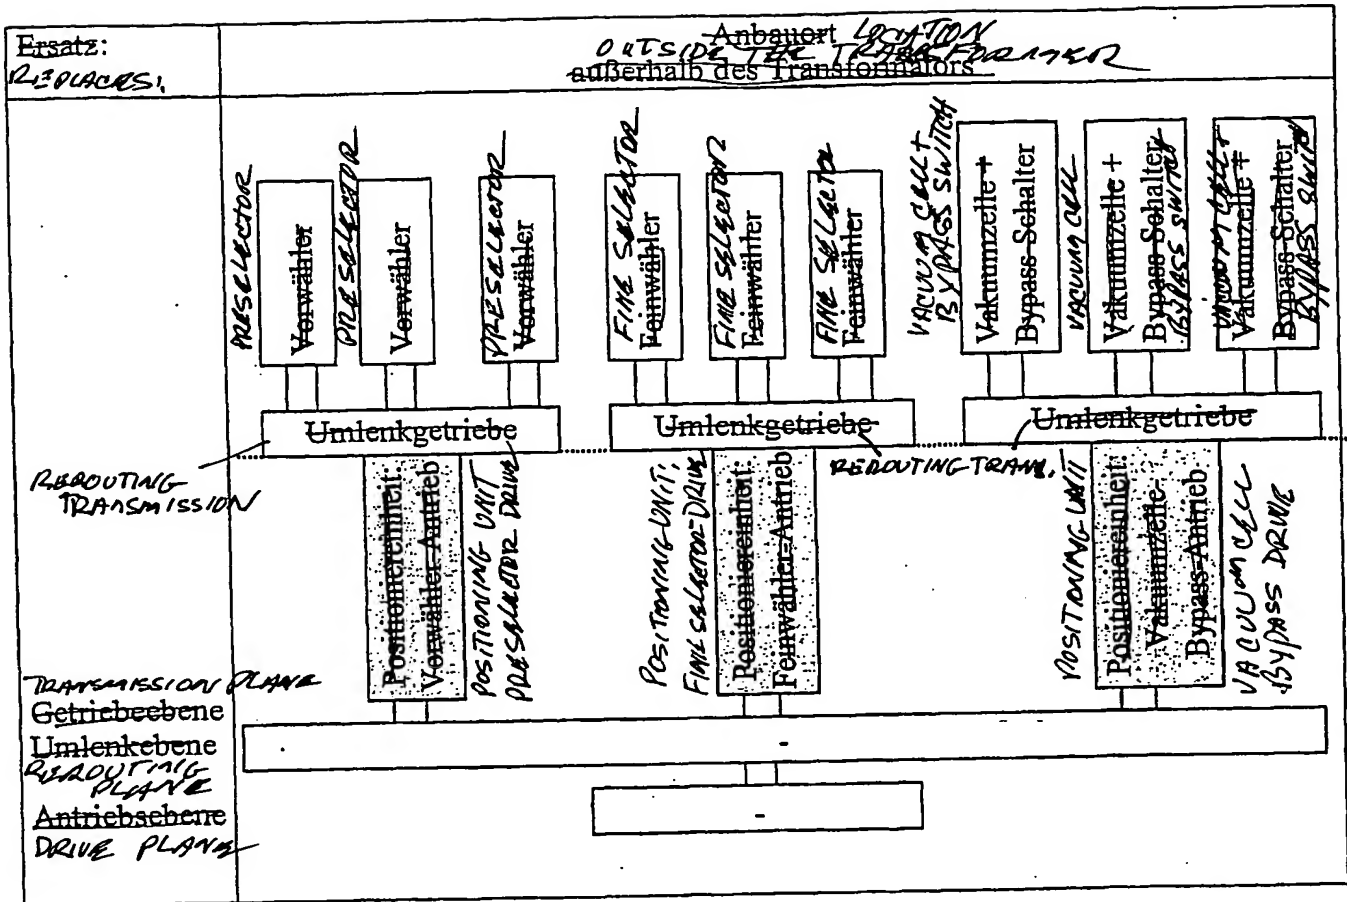 Ersatz:
REPLACES:
Anbauort LOCATION
OUTSIDE THE TRANSFORMER
außerhalb des Transformators
PRESELECTOR
Vorwähler
PRESELECTOR
Vorwähler
PRESELECTOR
Vorwähler
FINE SELECTOR
Feinwähler
FINE SELECTOR
Feinwähler
FINE SELECTOR
Feinwähler
VACUUM CELL+
BYPASS SWITCH
Vakuumzelle +
Bypass-Schalter
VACUUM CELL
Vakuumzelle +
Bypass-Schalter
BYPASS SWITCH
VACUUM CELL+
Vakuumzelle +
Bypass-Schalter
BYPASS SWITCH
Umlenkgetriebe
Umlenkgetriebe
Umlenkgetriebe
REROUTING
TRANSMISSION
REROUTING TRANM.
Positioniereinheit:
Vorwähler-Antrieb
POSITIONING UNIT
PRESELECTOR DRIVE
POSITIONING UNIT:
FINE SELECTOR=DRIVE
Positioniereinheit:
Feinwähler-Antrieb
POSITIONING UNIT
Positioniereinheit:
Vakuumzelle-
Bypass-Antrieb
VACUUM CELL
BYPASS DRIVE
TRANSMISSION PLANE
Getriebeebene
Umlenkebene
REROUTING
PLANE
Antriebsebene
DRIVE PLANE